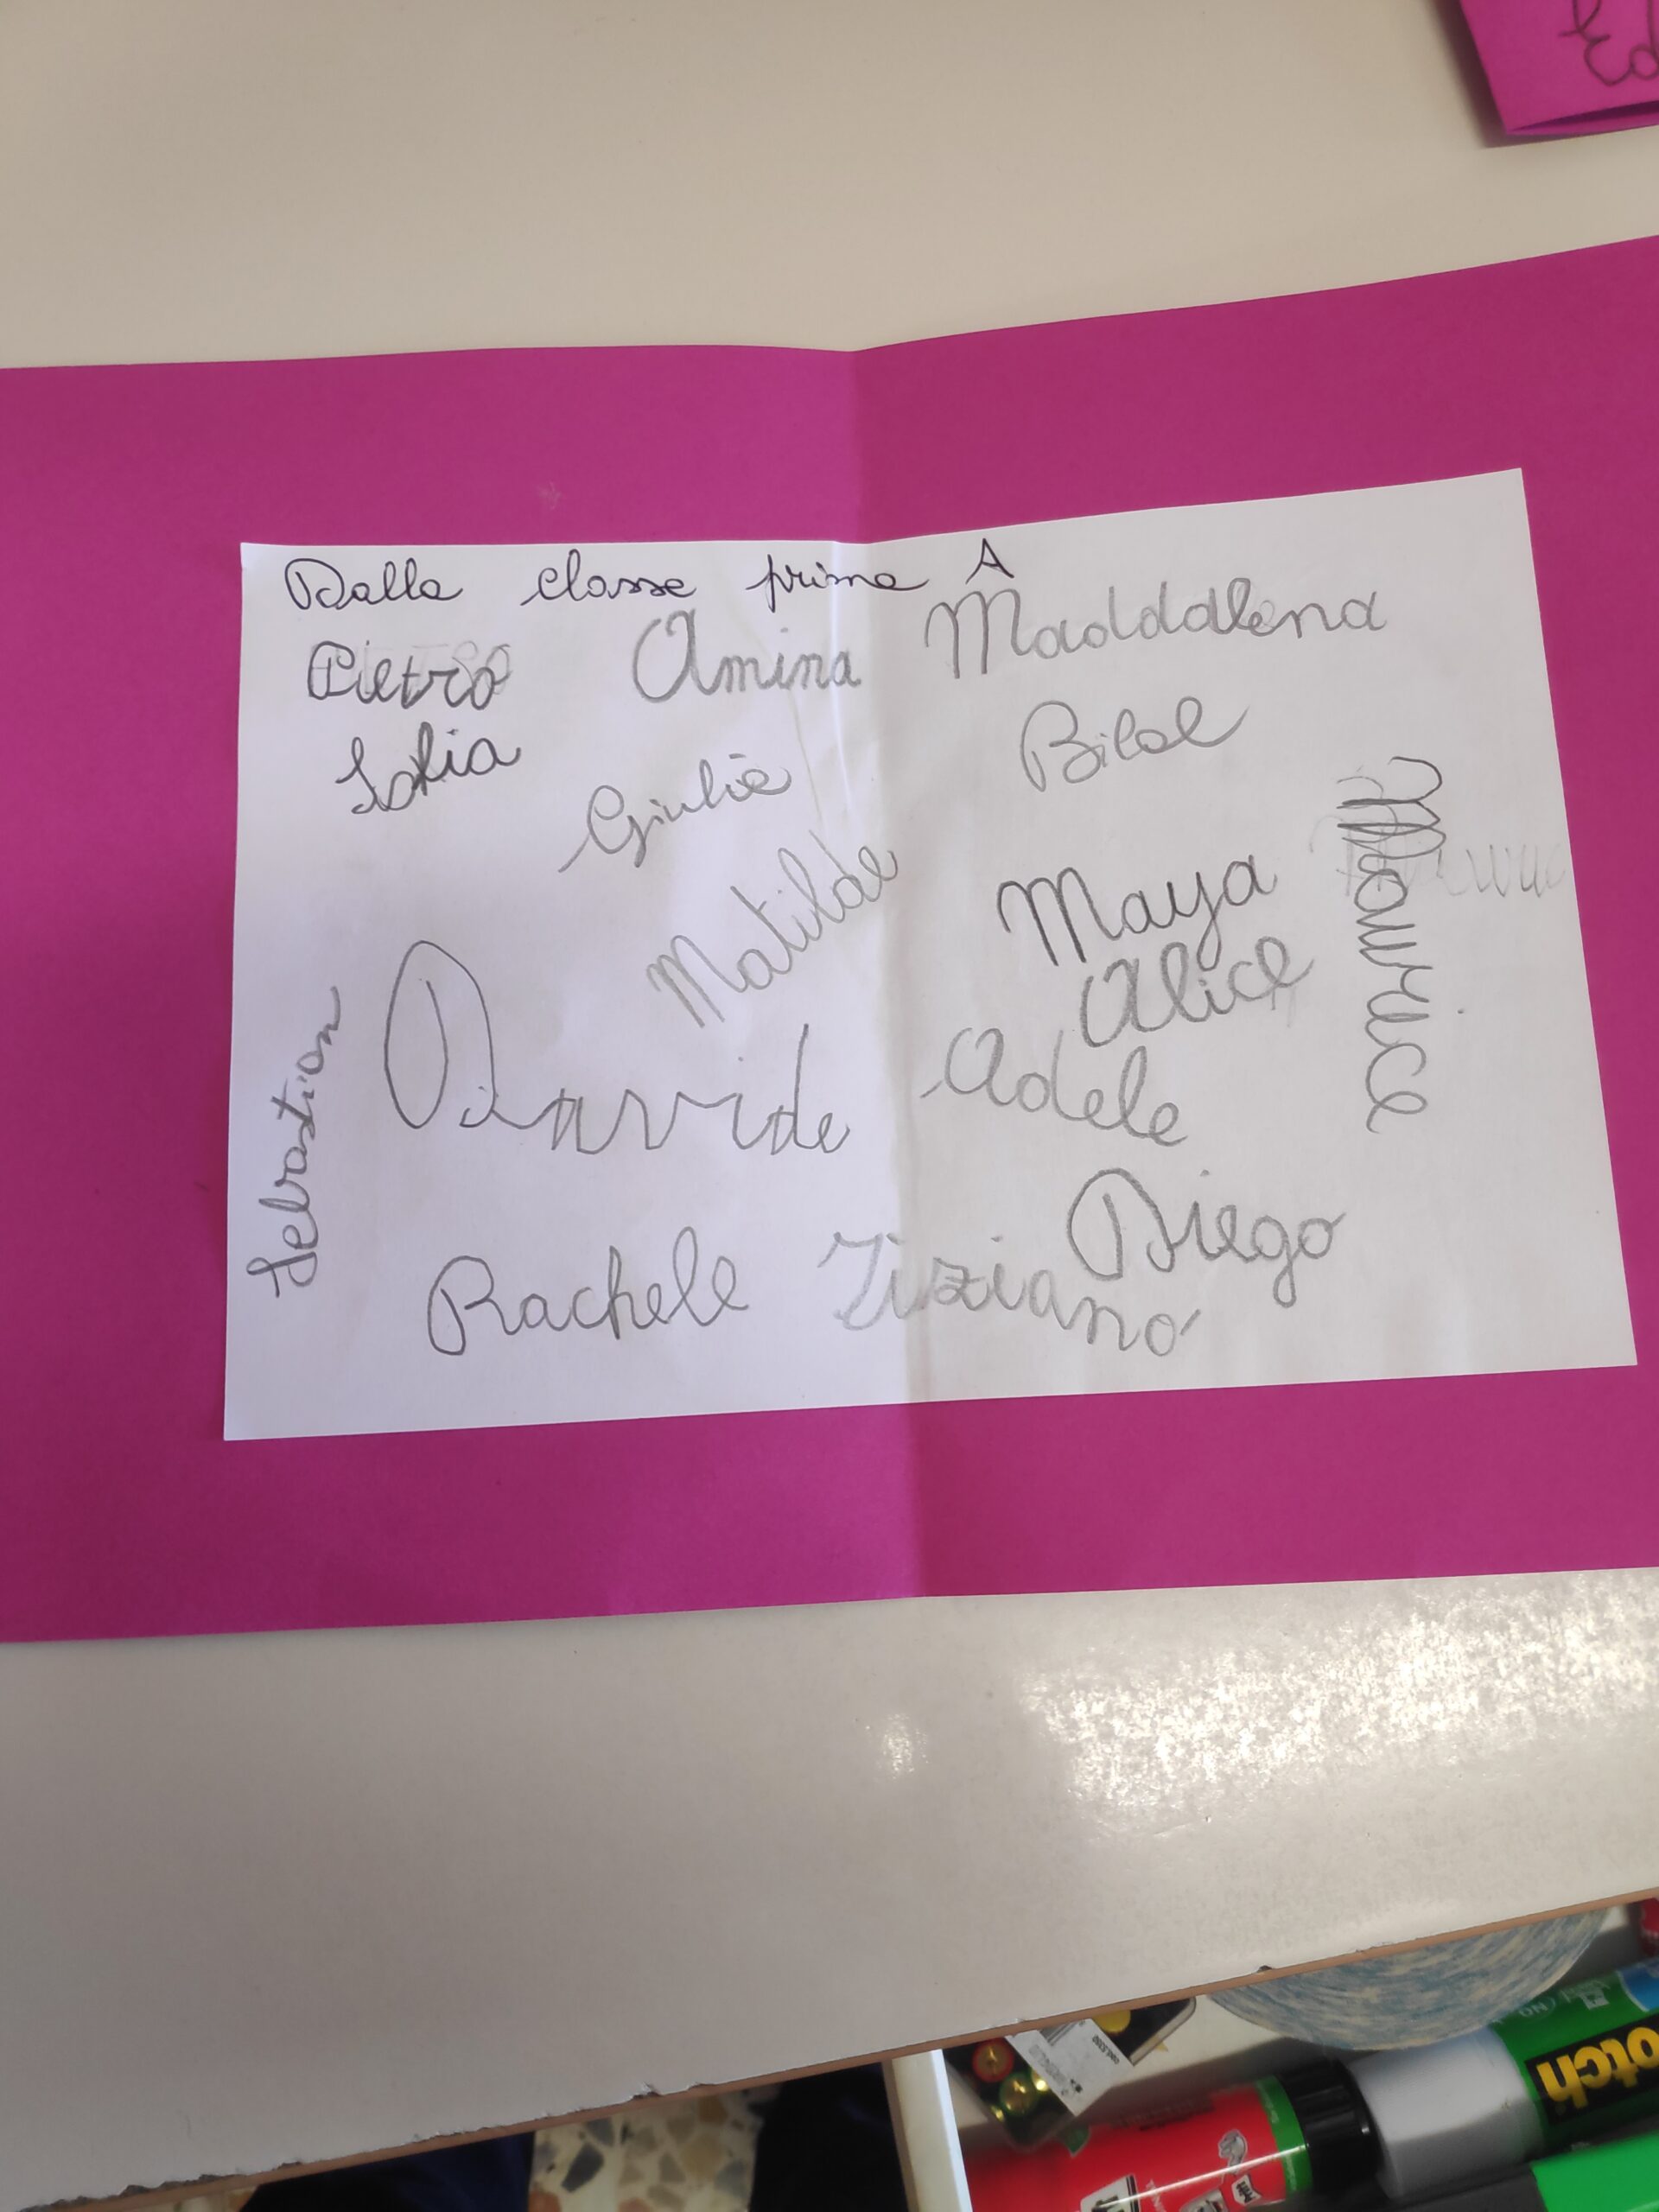 Dalla classe prima A
Pietro Amina Maddalena
Sofia Giulia Bilal
Matilde Maya Maurice
Alice
Sebastian Davide Adele
Diego
Rachele Tiziano
otch